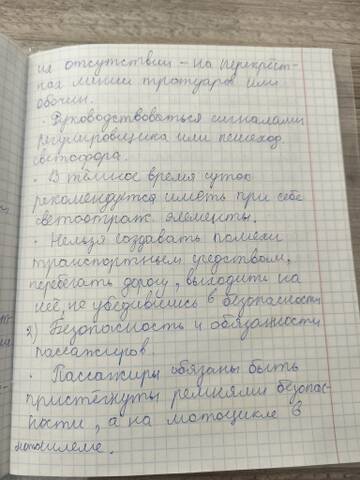 их отсутствии - на перекрест-
ках линии тротуаров или
обочин.
· Руководствоваться сигналами
регулировщика или пешеход.
светофора.
· В тёмное время суток
рекомендуется иметь при себе
светоотраж. элементы.
· Нельзя создавать помехи
транспортным средствам,
перебегать дорогу, выходить на
неё, не убедившись в безопасности
2) Безопасность и обязанности
пассажиров.
· Пассажиры обязаны быть
пристёгнуты ремнями безопас-
ности, а на мотоцикле в
мотошлеме.